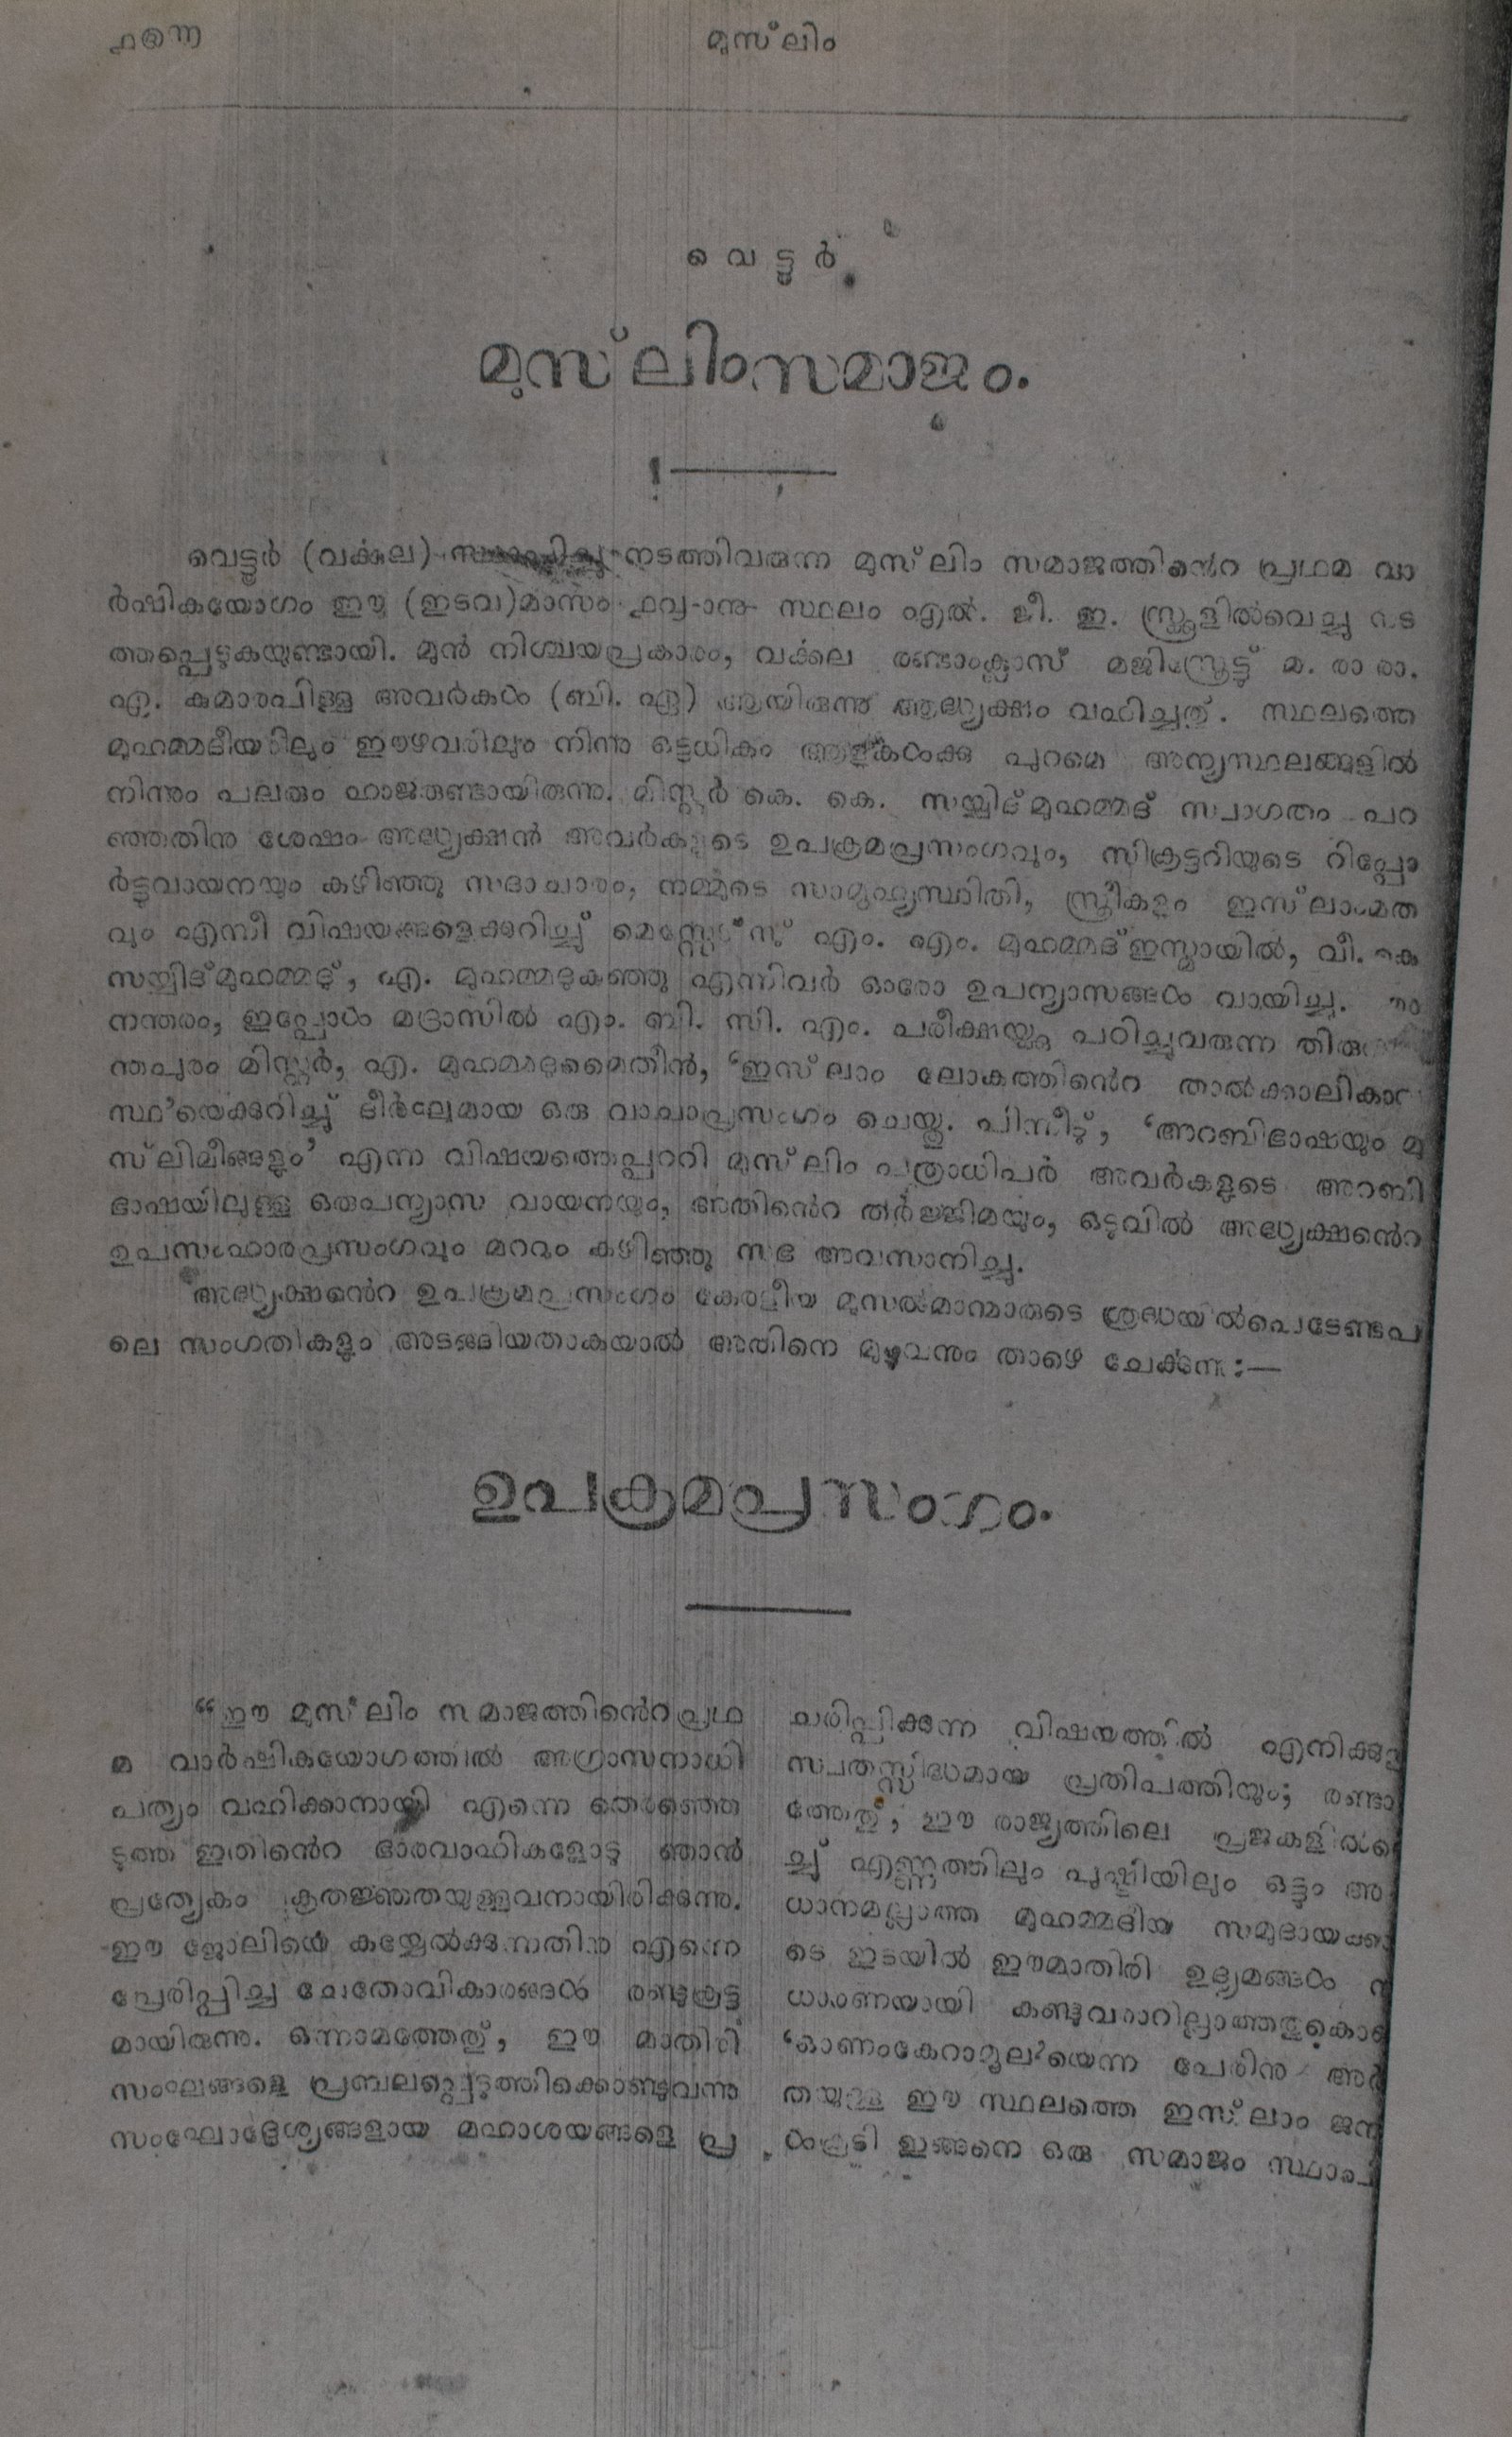 മുസ്‌ലിം
വെട്ടൂർ
മുസ്‌ലിംസമാജം.
വെട്ടൂർ (വക്കല) നടത്തിവരുന്ന മുസ്‌ലിം സമാജത്തിൻെറ പ്രഥമ വാ
ർഷികയോഗം ഈ (ഇടവ)മാസം സ്ഥലം എൽ. ജീ. ഇ. സ്ക്രൂളിൽവെച്ചു നട
ത്തപ്പെടുകയുണ്ടായി. മുൻ നിശ്ചയപ്രകാരം, വക്കല രണ്ടാംക്ലാസ് മജിസ്ട്രേട്ട് മ. രാ രാ.
എ. കുമാരപിള്ള അവർകൾ (ബി. ഏ) ആയിരുന്നു ആദ്ധ്യക്ഷം വഹിച്ചത്. സ്ഥലത്തെ
മുഹമ്മദീയരിലും ഈഴവരിലും നിന്നു ഒട്ടധികം ആള്കൾക്കു പുറമെ അന്യസ്ഥലങ്ങളിൽ
നിന്നും പലരും ഹാജരുണ്ടായിരുന്നു. മിസ്റ്റർ കെ. കെ. സയ്യിദ്മുഹമ്മദ് സ്വാഗതം പറ
ഞ്ഞതിനു ശേഷം അദ്ധ്യക്ഷൻ അവർകളുടെ ഉപക്രമപ്രസംഗവും, സിക്രട്ടറിയുടെ റിപ്പോ
ർട്ടുവായനയും കഴിഞ്ഞു സദാചാരം, നമ്മുടെ സാമുഹ്യസ്ഥിതി, സ്ത്രീകളും ഇസ്‌ലാംമത
വും എന്നീ വിഷയങ്ങളെക്കുറിച്ച് എം. എം. മുഹമ്മദ്ഇസ്മായിൽ, വീ. കെ
സയ്യിദ്മുഹമ്മദ്, എ. മുഹമ്മദുകുഞ്ഞു എന്നിവർ ഓരോ ഉപന്യാസങ്ങൾ വായിച്ചു.
നന്തരം, ഇപ്പോൾ മദ്രാസിൽ എം. ബി. സി. എം. പരീക്ഷയ്ക്കു പഠിച്ചുവരുന്ന തിരു
ന്തപുരം മിസ്റ്റർ, എ. മുഹമ്മദുമൈതീൻ, ‘ഇസ്‌ലാം ലോകത്തിൻെറ താൽക്കാലികാ
സ്ഥ’യെക്കുറിച്ച് ദീർഘമായ ഒരു വാചാപ്രസംഗം ചെയ്തു. പിന്നീടു്, ‘അറബിഭാഷയും മു
സ്‌ലിമീങ്ങളും’ എന്ന വിഷയത്തെപ്പററി മുസ്‌ലിം പത്രാധിപർ അവർകളുടെ അറബി
ഭാഷയിലുള്ള ഒരുപന്യാസ വായനയും, അതിൻെറ തർജ്ജിമയും, ഒടുവിൽ അദ്ധ്യക്ഷൻെറ
ഉപസംഹാരപ്രസംഗവും മററും കഴിഞ്ഞു സഭ അവസാനിച്ചു.
അദ്ധ്യക്ഷൻെറ ഉപക്രമപ്രസംഗം കേരളീയ മുസൽമാന്മാരുടെ ശ്രദ്ധയിൽപെടേണ്ടപ
ലെ സംഗതികളും അടങ്ങിയതാകയാൽ അതിനെ മുഴുവനും താഴെ ചേർക്കുന്നു:—
ഉപക്രമപ്രസംഗം.
“ഈ മുസ്‌ലിം സമാജത്തിൻെറ പ്രഥ
മ വാർഷികയോഗത്തിൽ അഗ്രാസനാധി
പത്യം വഹിക്കാനായി എന്നെ തെരഞ്ഞെ
ടുത്ത ഇതിൻെറ ഭാരവാഹികളോടു ഞാൻ
പ്രത്യേകം കൃതജ്ഞതയുള്ളവനായിരിക്കുന്നു.
ഈ ജോലിയെ കയ്യേൽക്കുന്നതിന്നു എന്നെ
പ്രേരിപ്പിച്ച ചേതോവികാരങ്ങൾ രണ്ടുകൂട്ട
മായിരുന്നു. ഒന്നാമത്തേത്, ഈ മാതിരി
സംഘങ്ങളെ പ്രബലപ്പെടുത്തിക്കൊണ്ടുവന്നു
സംഘോദ്ദേശ്യങ്ങളായ മഹാശയങ്ങളെ പ്ര
ചരിപ്പിക്കുന്ന വിഷയത്തിൽ എനിക്കുള്ള
സ്വതസ്സിദ്ധമായ പ്രതിപത്തിയും; രണ്ടാ
ത്തേത്, ഈ രാജ്യത്തിലെ പ്രജകളിൽവെ
ച്ച് എണ്ണത്തിലും പുഷ്ടിയിലും ഒട്ടും അ
ധാനമല്ലാത്ത മുഹമ്മദീയ സമുദായക്കാ
ടെ ഇടയിൽ ഈമാതിരി ഉദ്യമങ്ങൾ
ധാരണയായി കണ്ടുവരാറില്ലാത്തതുകൊ
‘ഓണംകേറാമൂല’യെന്ന പേരിനു അർ
തയുള്ള ഈ സ്ഥലത്തെ ഇസ്‌ലാം ജന
ൾകൂടി ഇങ്ങനെ ഒരു സമാജം സ്ഥാപി